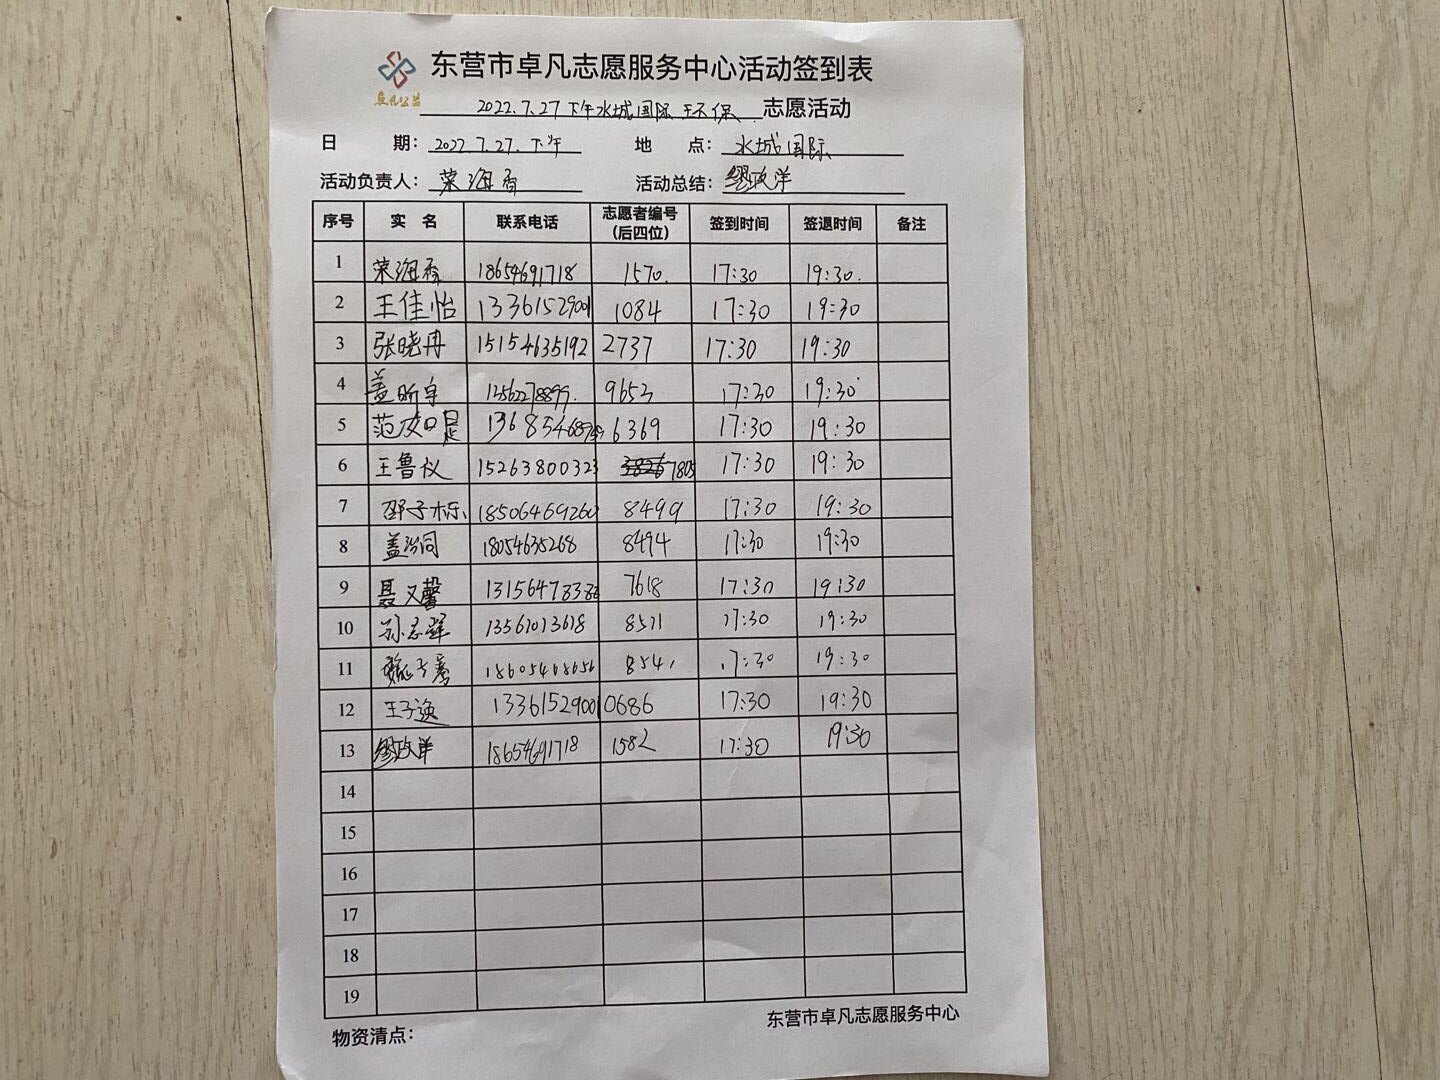 东营市卓凡志愿服务中心活动签到表
卓凡公益
2022.7.27下午水城国际环保 志愿活动
日 期: 2022.7.27.下午 地 点: 水城国际
活动负责人: 荣海香 活动总结: 缪政洋
序号 实 名 联系电话 志愿者编号(后四位) 签到时间 签退时间 备注
1 荣海香 18654691718 1570. 17:30 19:30.
2 王佳怡 13361529001 1084 17:30 19:30
3 张晓冉 15154635192 2737 17:30 19:30
4 盖昕宇 13562278899. 9653 17:30 19:30
5 范 6369 17:30 19:30
6 王鲁仪 15263800323 7805 17:30 19:30
7 邵子栋 18506469260 8499 17:30 19:30
8 盖 同 18054635268 8494 17:30 19:30
9 聂又馨 7618 17:30 19:30
10 孙志 8511 17:30 19:30
11 魏 854 17:30 19:30
12 王子逸 13361529001 0686 17:30 19:30
13 缪政洋 18654691718 1582 17:30 19:30
14
15
16
17
18
19
物资清点:
东营市卓凡志愿服务中心